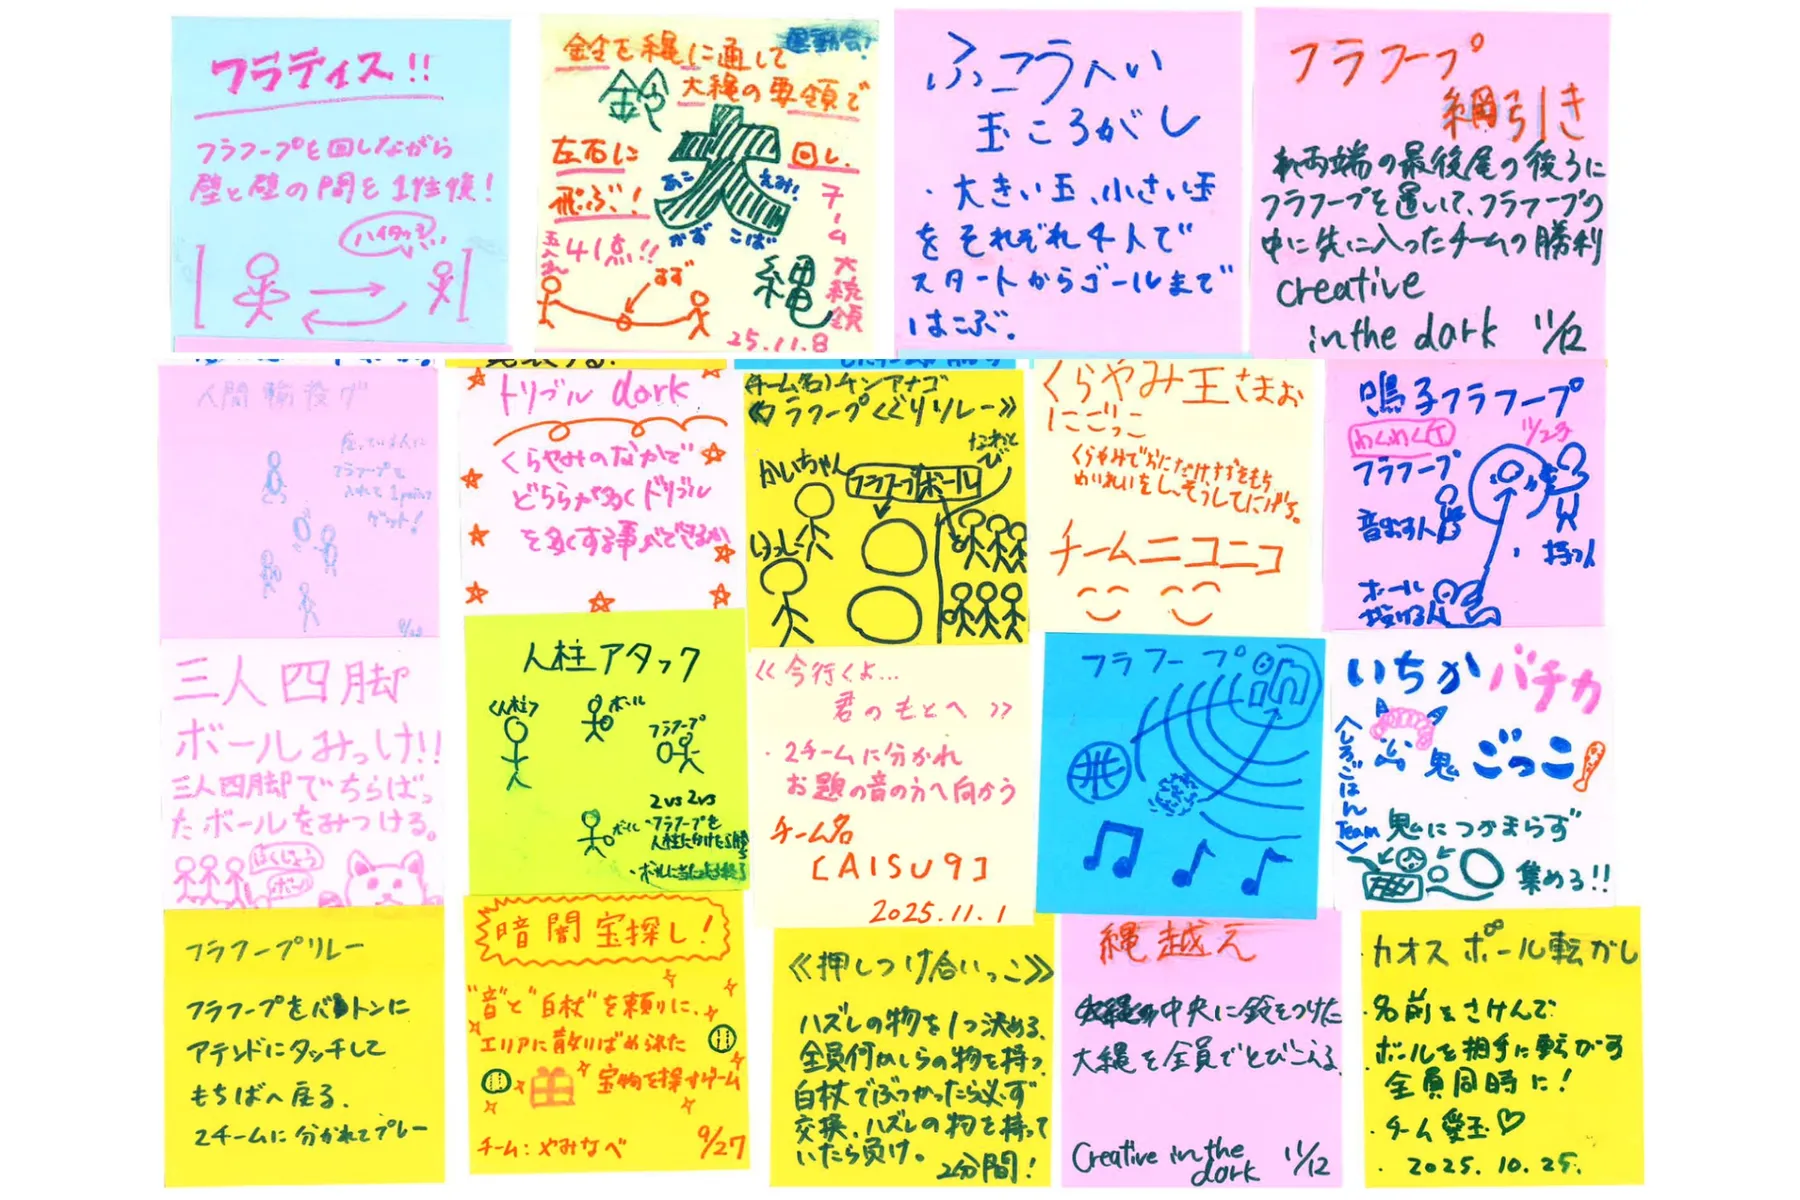 フラディス!!
フラフープを回しながら
壁と壁の間を1往復!
ハイタッチ
鈴を縄に通して
運動会!
鈴
大縄の要領で
大
左右に
回し.
飛ぶ!
あこ
えみ!
かお
こば
玉入れ
41点!!
すず
縄
チーム大統領
25.11.8
ふこうへい
玉ころがし
・大きい玉、小さい玉
をそれぞれ4人で
スタートからゴールまで
はこぶ。
フラフープ
綱引き
両端の最後尾の後ろに
フラフープを置いて、フラフープの
中に先に入ったチームの勝利
creative
in the dark 11/12
人間輪投げ
フラフープを
入れて1point
ゲット!
トリブル dark
くらやみのなかで
どちらが多くドリブル
を多くする事ができるか
(チーム名)チンアナゴ
《フラフープくぐりリレー》
かいちゃん
フラフープ ボール
くらやみ王さまお
にごっこ
くらやみでおにだけすずをもち
めいれいをし、そうしてにげる。
チームニコニコ
鳴子フラフープ
わくわくT
11/23
フラフープ
音出す人
持つ人
ボール
投げる人
三人四脚
ボールみっけ!!
三人四脚でちらばっ
たボールをみつける。
はくじょう
ボール
人柱アタック
<人柱>
ボール
フラフープ
2vs2vs
ボール
・フラフープを
人柱にかけたら勝ち
・ボールに当たったら終了
<<今行くよ...
君のもとへ>>
・2チームに分かれ
お題の音の方へ向かう
チーム名
[AISU9]
2025.11.1
フラフープin
いちか バチカ
鬼ごっこ
<しろごはんTeam>
鬼につかまらず
集める!!
フラフープリレー
フラフープをバトンに
アテンドにタッチして
もちばへ戻る.
2チームに分かれてプレー
暗闇宝探し!
"音"と"白杖"を頼りに、
エリアに散りばめられた
宝物を探すゲーム
チーム:やみなべ
9/27
《押しつけ合いっこ》
ハズレの物を1つ決める、
全員何かしらの物を持つ、
白杖でぶつかったら必ず
交換、ハズレの物を持って
いたら負け。
2分間!
縄越え
中央に鈴をつけた
大縄を全員でとびこえる.
Creative in the
dark 11/12
カオスボール転がし
・名前をさけんで
ボールを相手に転がす
・全員同時に!
・チーム愛玉♡
・2025.10.25.